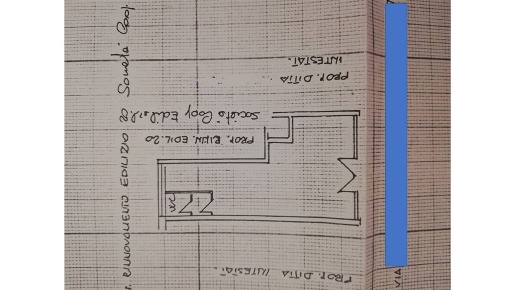 RINNOVAMENTO EDILIZIO 20 Società Coop
PROP. DITTA
INTESTAT.
Società Coop Edilizie
PROP. RINN. EDIL. 20
WC
PROP. DITTA INTESTAT.
VIA